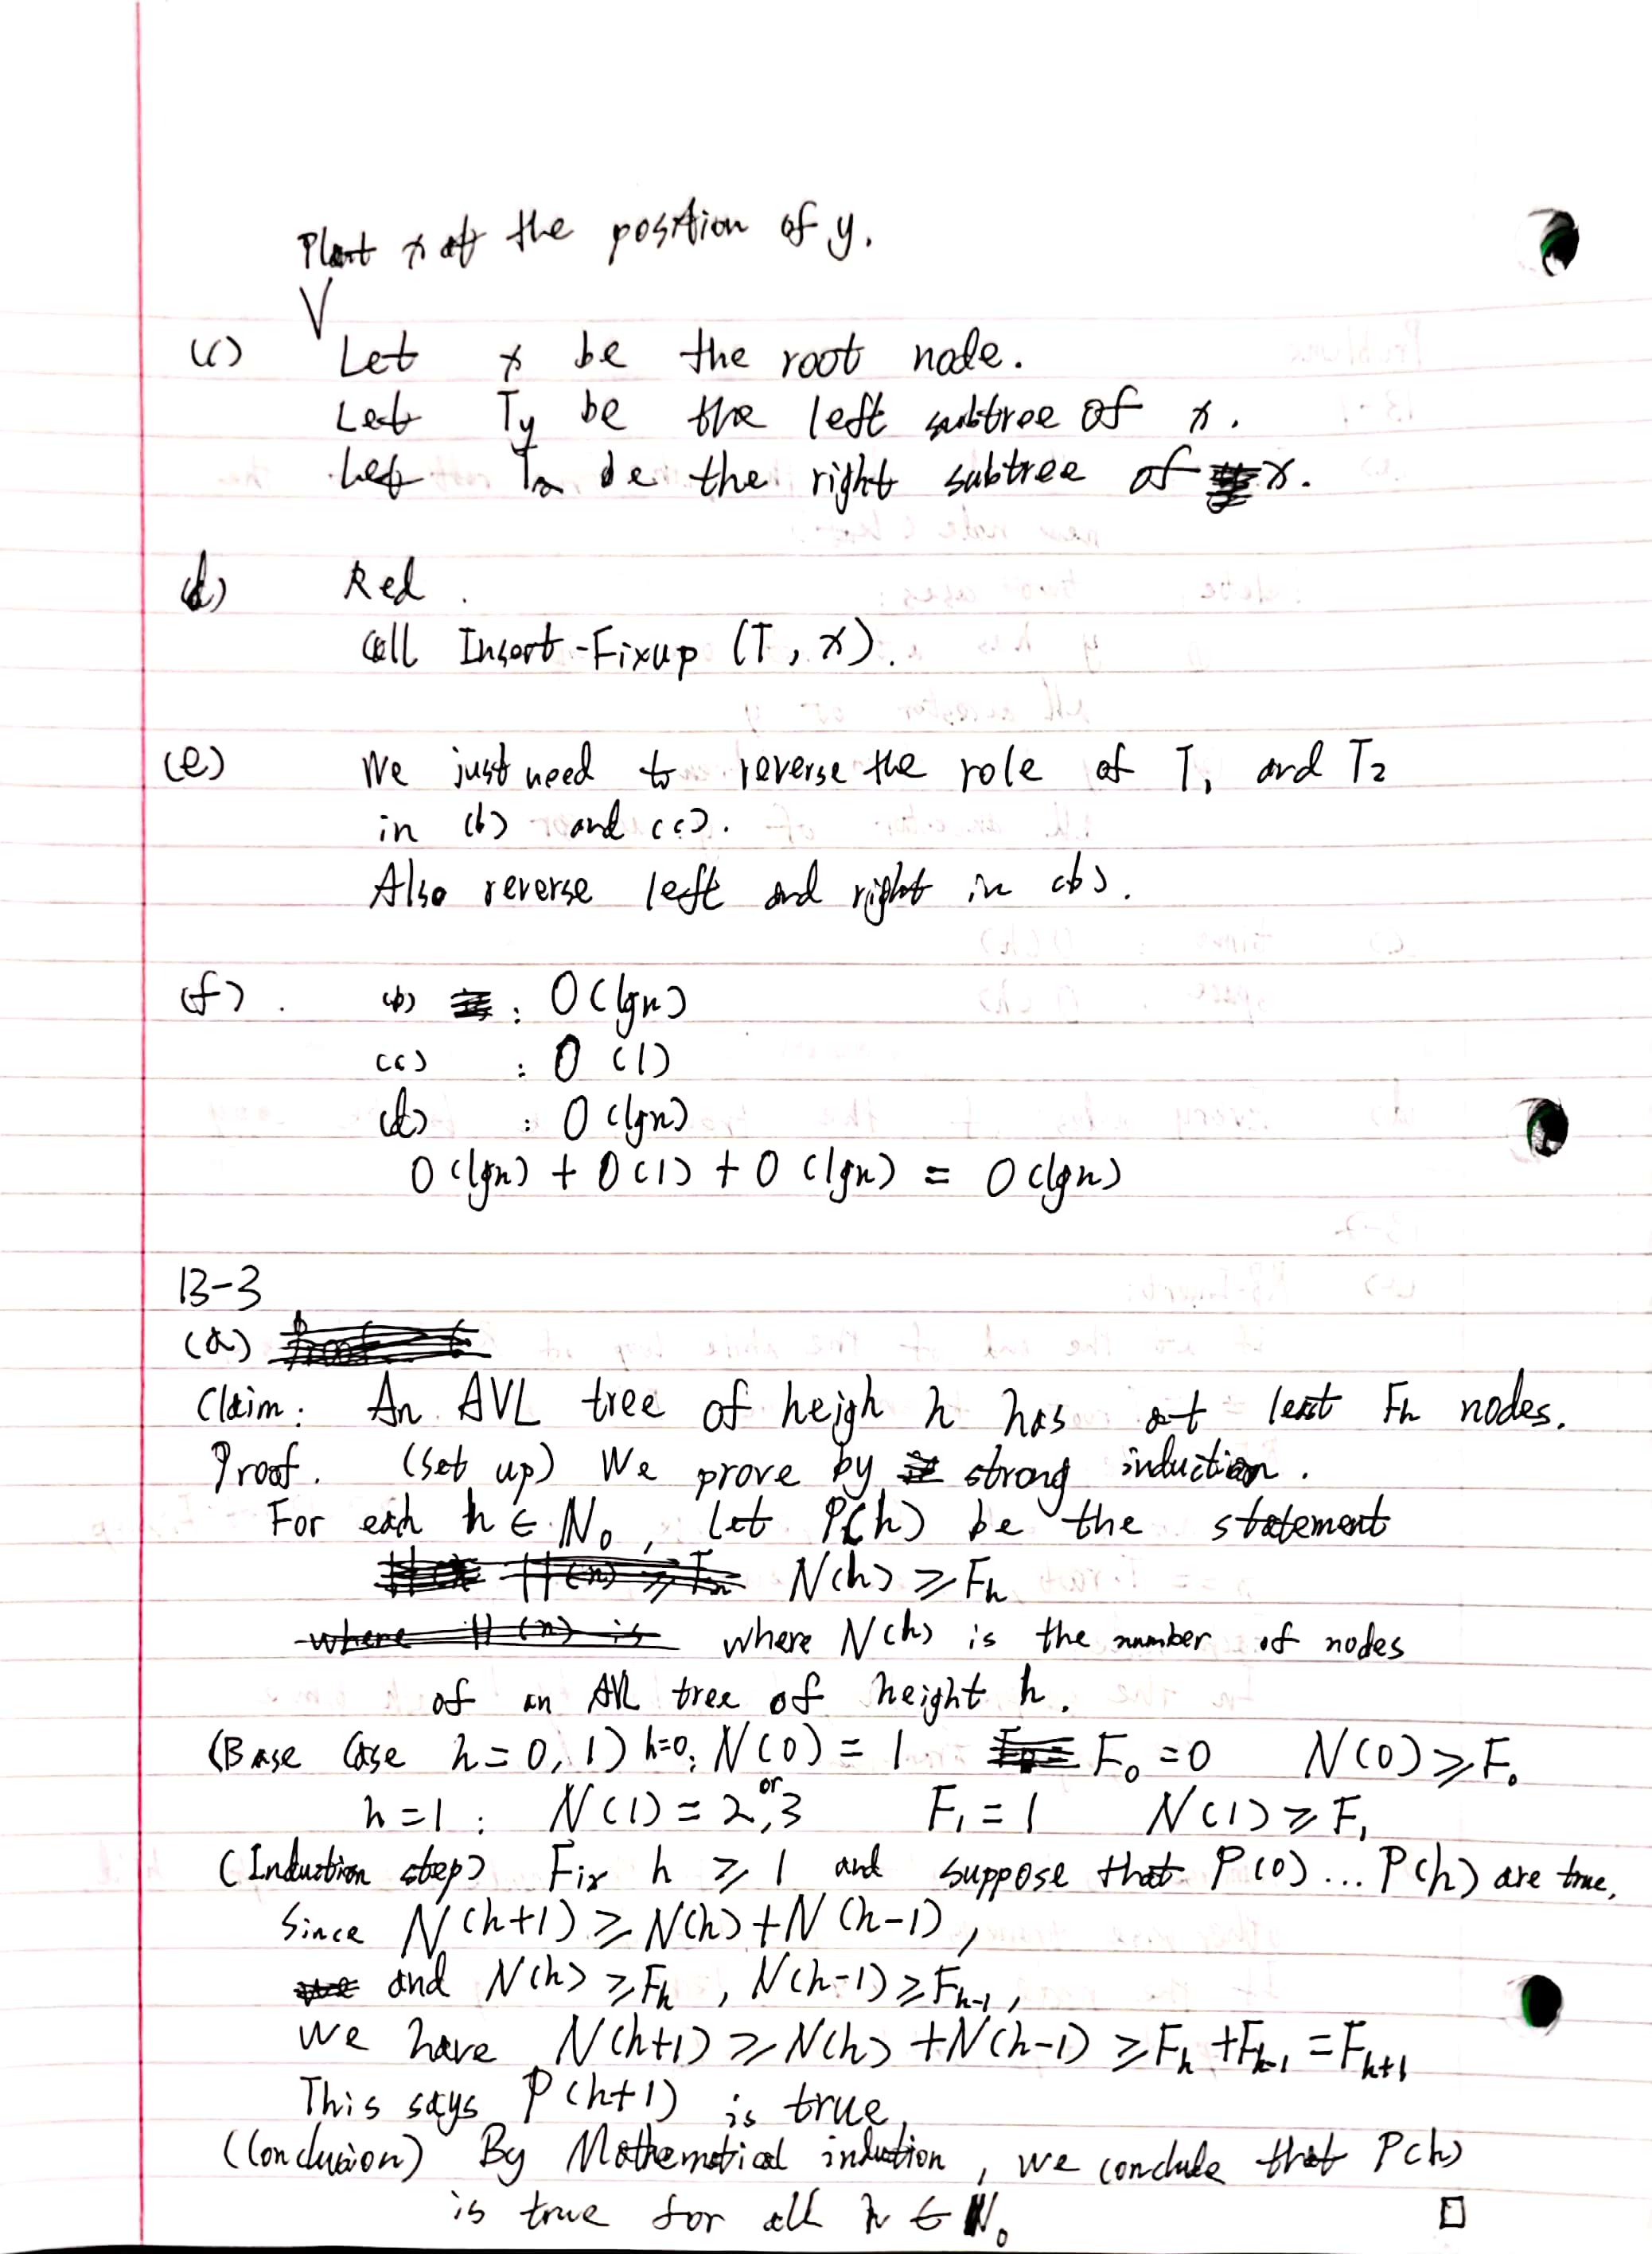 Plant x at the position of y.
(c) Let x be the root node.
Let Ty be the left subtree of x.
Let T2 be the right subtree of x.
(d) Red.
Call Insert-Fixup (T, x).
(e) We just need to reverse the role of T1 and T2
in (b) and (c).
Also reverse left and right in (b).
(f). (b) : O(lgn)
(c) : O(1)
(d) : O(lgn)
O(lgn) + O(1) + O(lgn) = O(lgn)
13-3
(a)
Claim: An AVL tree of heigh h has at least Fh nodes.
Proof. (set up) We prove by strong induction.
For each h ∈ N0, let P(h) be the statement
N(h) ≥ Fh
where N(h) is the number of nodes
of an AVL tree of height h.
(Base Case h=0, 1) h=0: N(0) = 1 F0 = 0 N(0) ≥ F0
h=1: N(1) = 2, or 3 F1 = 1 N(1) ≥ F1
(Induction step) Fix h ≥ 1 and suppose that P(0) ... P(h) are true.
Since N(h+1) ≥ N(h) + N(h-1),
and N(h) ≥ Fh, N(h-1) ≥ Fh-1,
We have N(h+1) ≥ N(h) + N(h-1) ≥ Fh + Fh-1 = Fh+1
This says P(h+1) is true.
(Conclusion) By Mathematical induction, we conclude that P(h)
is true for all h ∈ N0 □